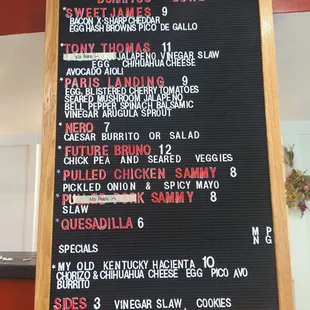 *SWEET JAMES 9
BACON X-SHARP CHEDDAR
EGG HASH BROWNS PICO DE GALLO
*TONY THOMAS 11
NO PORK JALAPENO VINEGAR SLAW
EGG CHIHUAHUA CHEESE
AVOCADO AIOLI
*PARIS LANDING 9
EGG, BLISTERED CHERRY TOMATOES
SEARED MUSHROOM JALAPENO
BELL PEPPER SPINACH BALSAMIC
VINEGAR ARUGULA SPROUT
*NERO 7
CAESAR BURRITO OR SALAD
*FUTURE BRUNO 12
CHICK PEA AND SEARED VEGGIES
*PULLED CHICKEN SAMMY 8
PICKLED ONION & SPICY MAYO
NO PORK SAMMY 8
SLAW
*QUESADILLA 6
M P
N G
SPECIALS
*MY OLD KENTUCKY HACIENTA 10
CHORIZO & CHIHUAHUA CHEESE EGG PICO AVO
BURRITO
SIDES 3 VINEGAR SLAW, COOKIES